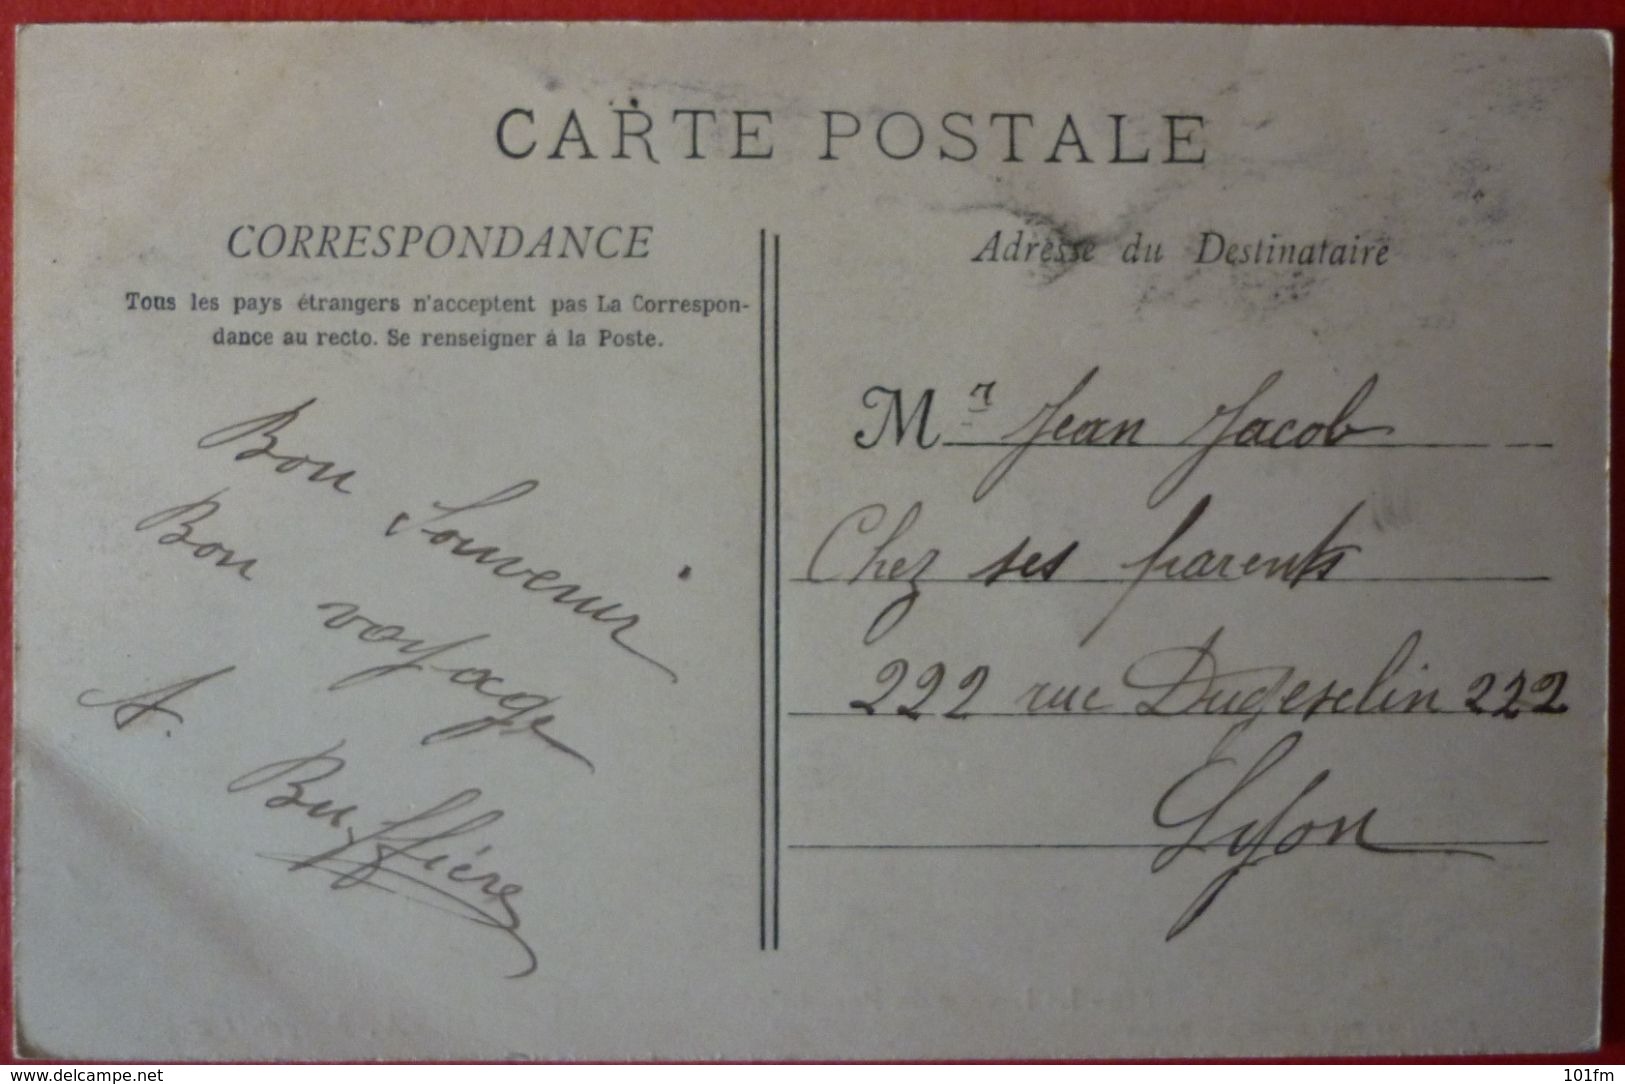 CARTE POSTALE
CORRESPONDANCE
Tous les pays étrangers n'acceptent pas La Correspon-
dance au recto. Se renseigner à la Poste.
Bon Souvenir
Bon voyage
A. Buffière
Adresse du Destinataire
Mr Jean Jacob
Chez ses parents
222 rue Dugeselin 222
Lyon
www.delcampe.net
101fm